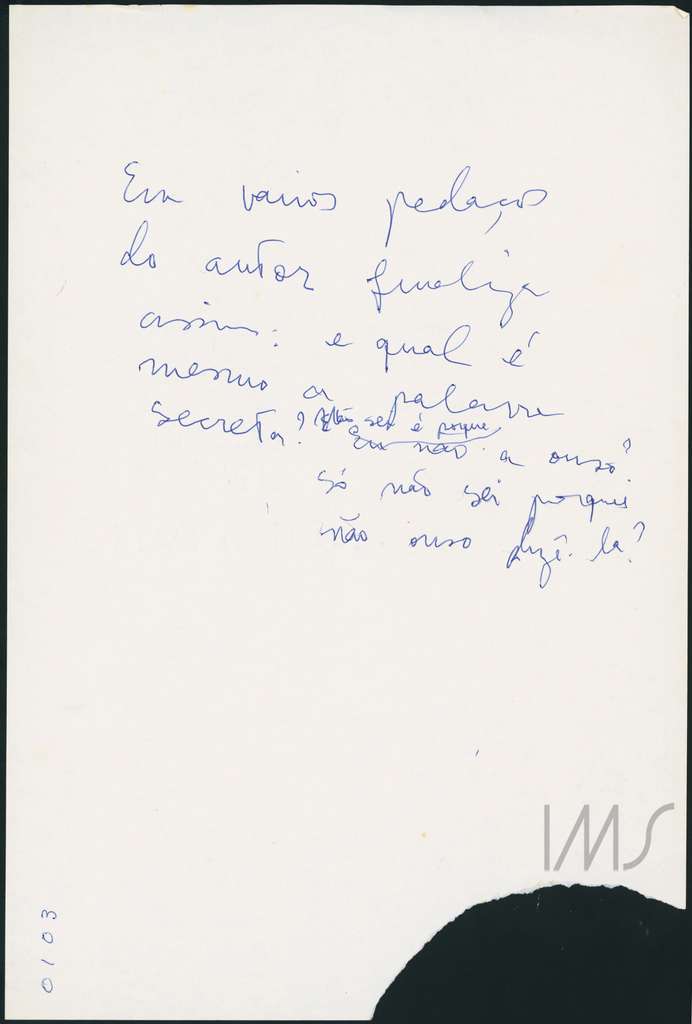 Em vários pedaços
do autor finaliza
assim: e qual é
mesmo a palavra
secreta? Não sei é porque
Eu não a ouso?
só não sei porque
não ouso dizê-la?
IMS
0103